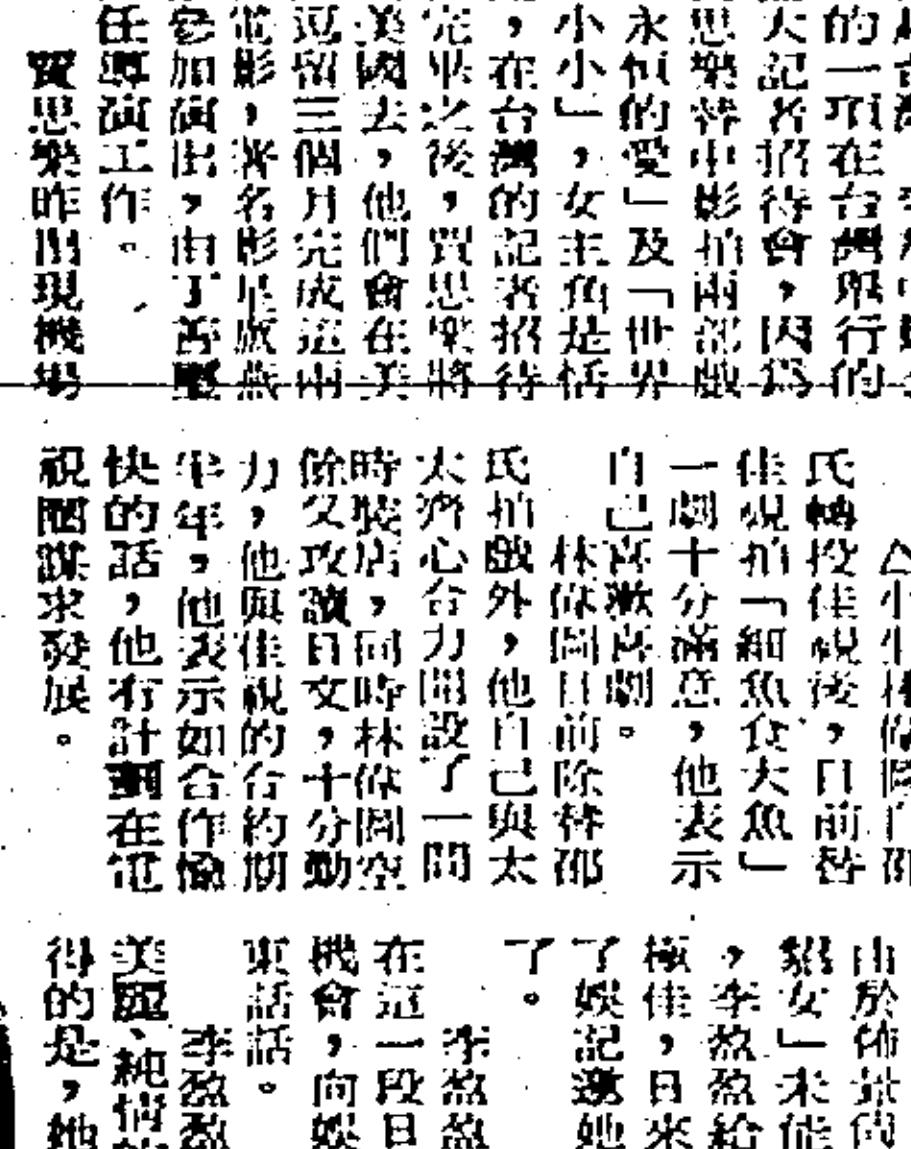 的一項在台灣舉行的
大記者招待會，因爲
思樂替中影拍兩部戲
永恒的愛」及「世界
小小」，女主角是恬
，在台灣的記者招待
完畢之後，賈思樂將
美國去，他們會在美
逗留三個月完成這兩
電影，著名影星威燕
參加演出，由丁善璽
任導演工作。
賈思樂昨出現機場
△小生林偉圖自邵
氏轉投佳視後，目前替
佳視拍「細魚食大魚」
一劇十分滿意，他表示
自己喜歡喜劇。
林偉圖目前除替邵
氏拍戲外，他自己與太
太齊心合力開設了一間
時裝店，同時林偉圖空
餘又攻讀日文，十分勤
力，他與佳視的合約期
半年，他表示如合作愉
快的話，他有計劃在電
視圈謀求發展。
由於佈景
貂女」未能
，李盈盈給
極佳，日來
了娛記邀她
了。
李盈盈
在這一段日
機會，向娛
東話話。
李盈盈
美麗、純情
得的是，她